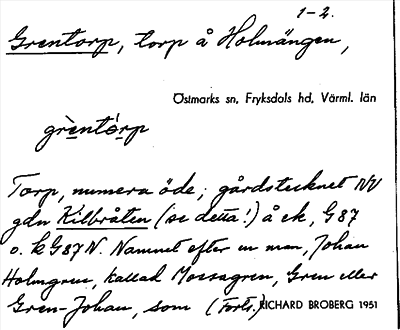 1-2.
Grentorp, torp å Holmängen,
Östmarks sn, Fryksdals hd, Värml. län
grèntórp
Torp, numera öde; gårdstecknet NV
gdn Kilbråten (se detta!) å ek, G87
o. k G87N. Namnet efter en man, Johan
Holmgren, kallad Mossagren, Gren eller
Gren-Johan, som (Forts.) RICHARD BROBERG 1951